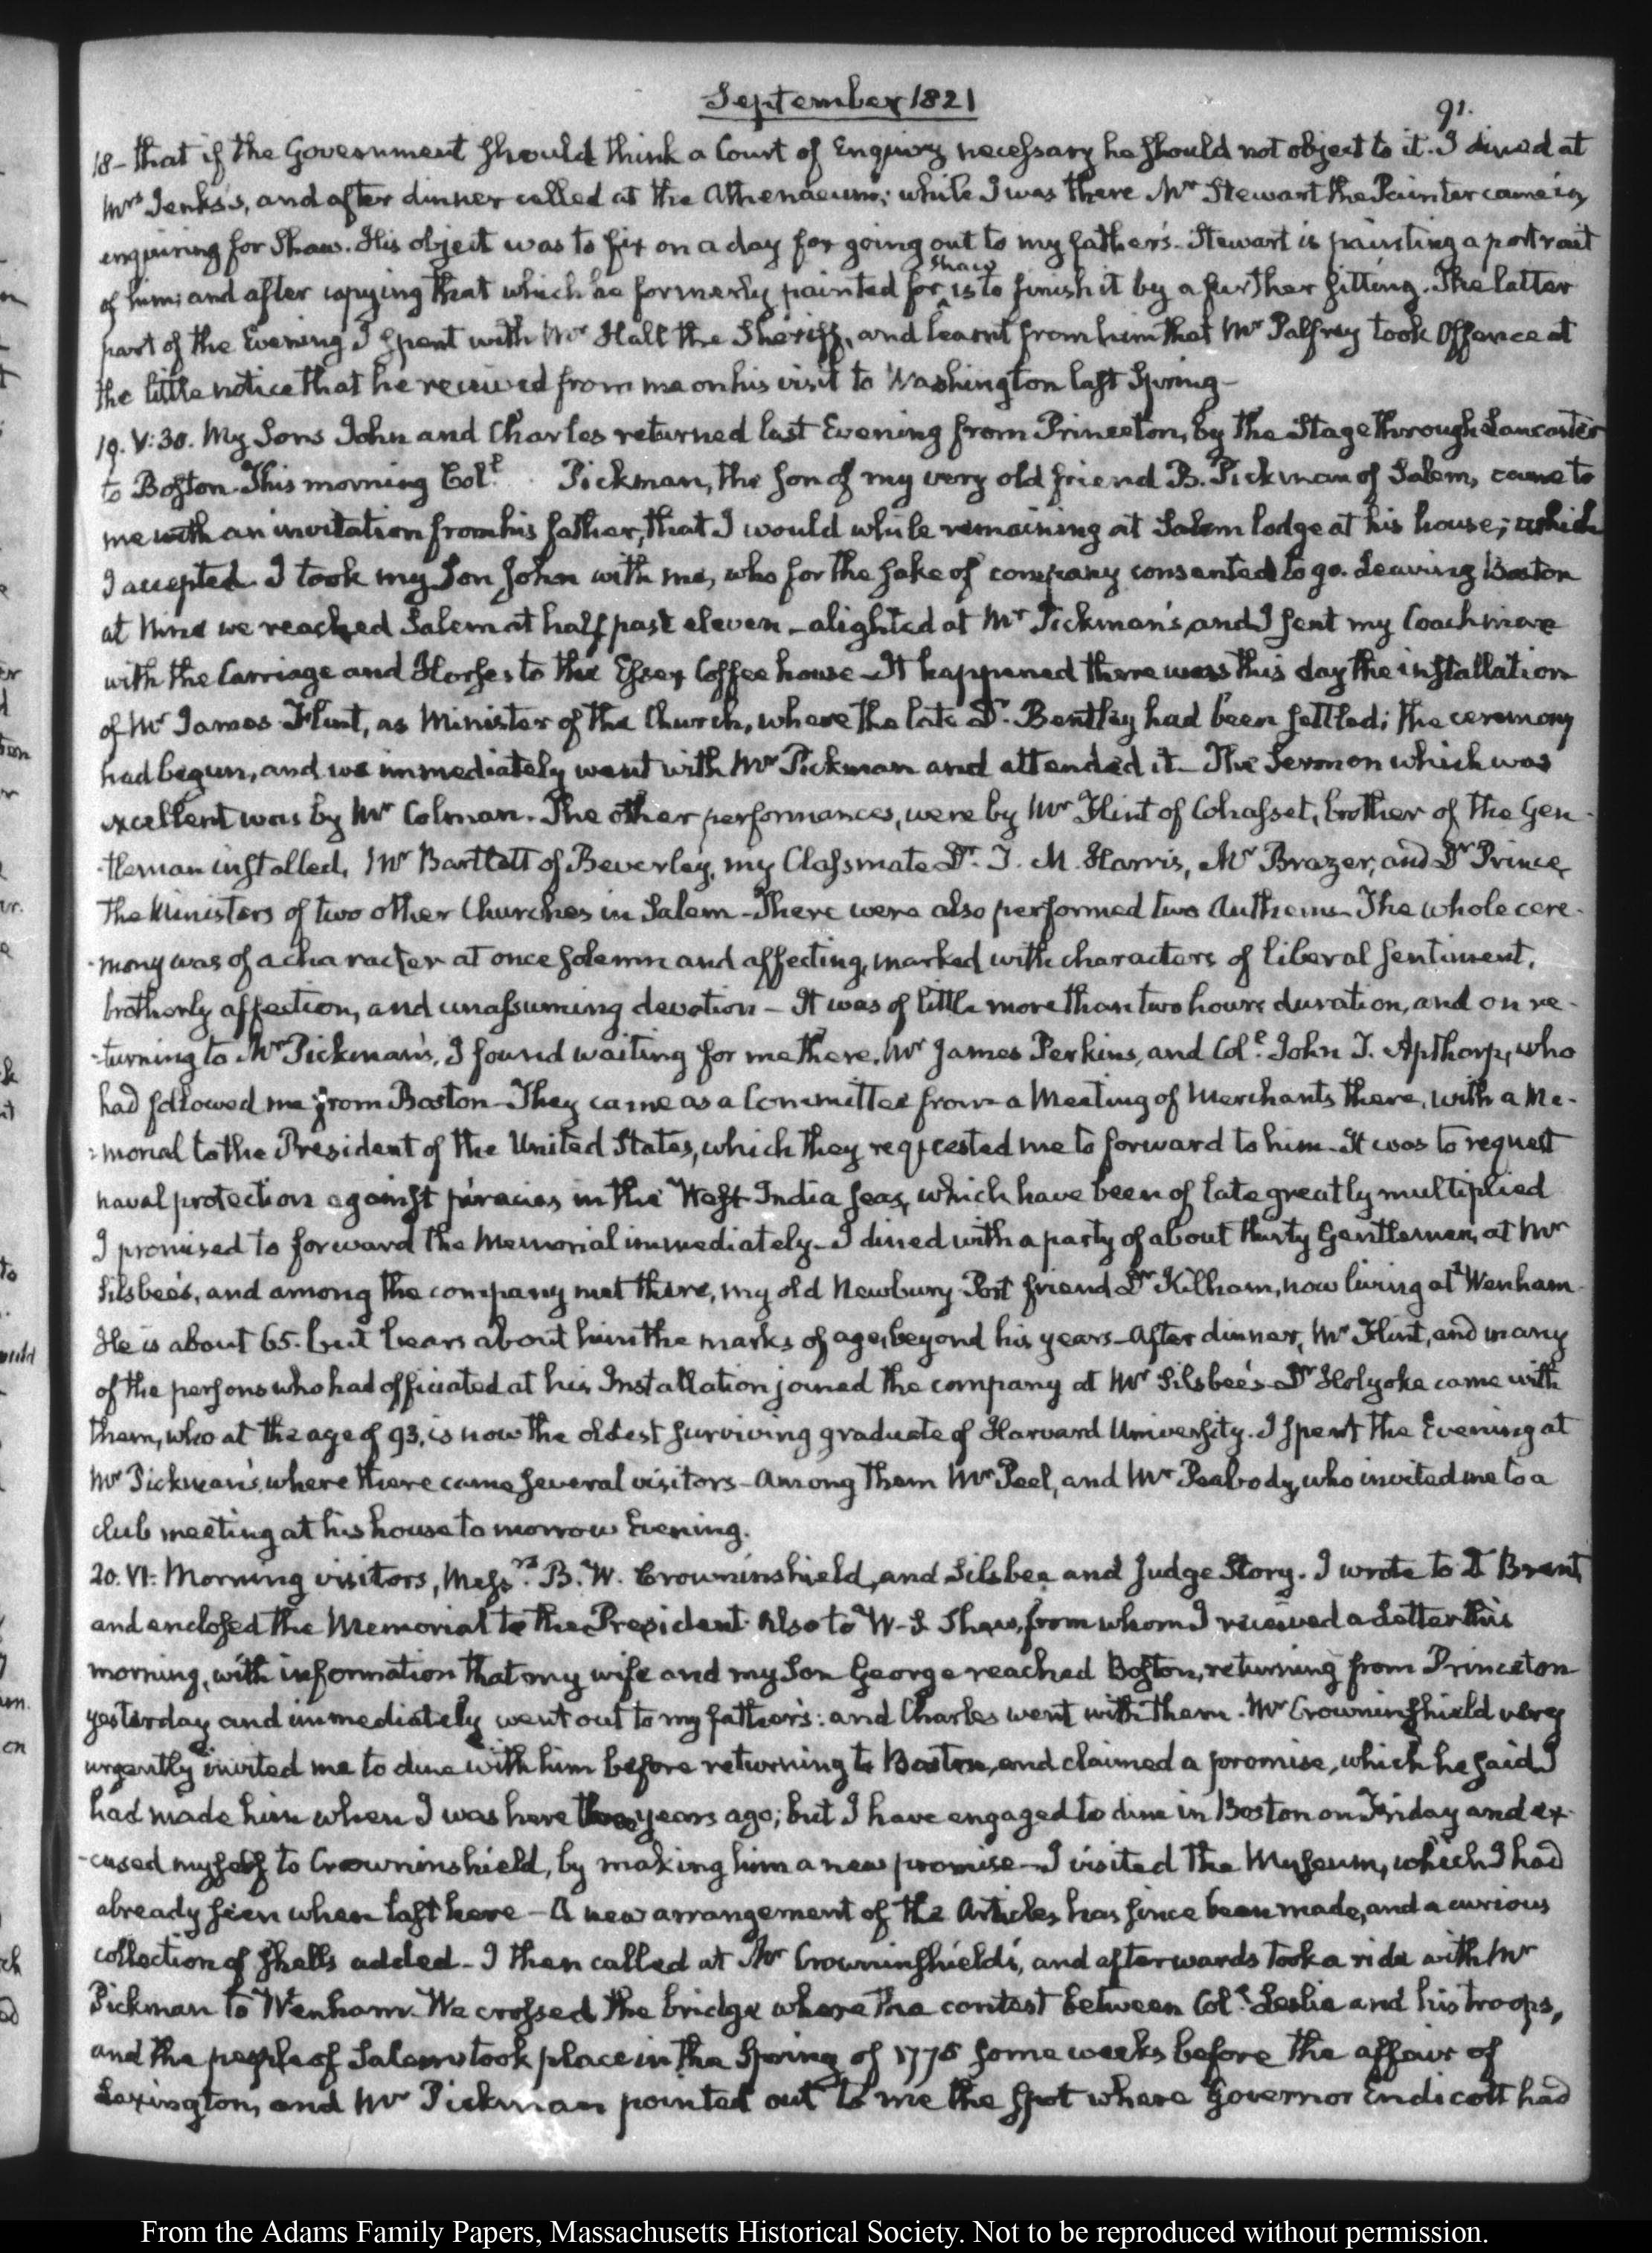 September 1821
91.
18 - that if the Government should think a Court of Enquiry necessary he should not object to it. I dined at
Mrs Jenks's, and after dinner called at the Athenaeum; while I was there Mr Stewart the Painter came in,
enquiring for Shaw. His object was to fix on a day for going out to my father's. Stewart is painting a portrait
of him; and after copying that which he formerly painted for Shaw is to finish it by a further sitting. The latter
part of the Evening I spent with Mr Hall the Sheriff, and learnt from him that Mr Palfrey took Offence at
the little notice that he received from me on his visit to Washington last Spring-
19. V:30. My Sons John and Charles returned last Evening from Princeton, by the Stage through Lancaster
to Boston. This morning Col.l Pickman, the son of my very old friend B. Pickman of Salem, came to
me with an invitation from his father, that I would while remaining at Salem lodge at his house; which
I accepted. I took my Son John with me, who for the sake of company consented to go. Leaving Boston
at Nine we reached Salem at half past eleven - alighted at Mr Pickman's, and I sent my Coachman
with the Carriage and Horses to the Essex Coffee house - It happened there was this day the installation
of Mr James Flint, as Minister of the Church, where the late Dr. Bentley had been settled; the ceremony
had begun, and we immediately went with Mr Pickman and attended it - The Sermon which was
excellent was by Mr Colman. The other performances, were by Mr Flint of Cohasset, brother of the Gen-
-tleman installed, Mr Bartlett of Beverley, my Classmate Dr. T. M. Harris, Mr Brazer, and Dr Prince,
the Ministers of two other Churches in Salem - There were also performed two Anthems - The whole cere-
-mony was of a character at once solemn and affecting, marked with characters of liberal sentiment,
brotherly affection, and unassuming devotion - It was of little more than two hours duration, and on re-
-turning to Mr Pickman's, I found waiting for me there, Mr James Perkins, and Col.l John T. Apthorp, who
had followed me from Boston - They came as a Committee from a Meeting of Merchants there, with a Me-
-morial to the President of the United States, which they requested me to forward to him - It was to request
naval protection against piracies in the West-India seas, which have been of late greatly multiplied
I promised to forward the Memorial immediately - I dined with a party of about thirty Gentlemen, at Mr
Silsbee's, and among the company met there, my old Newbury-Port friend Dr Kilham, now living at Wenham -
He is about 65. but bears about him the marks of age, beyond his years - After dinner, Mr Flint, and many
of the persons who had officiated at his Installation joined the company at Mr Silsbee's - Dr Holyoke came with
them, who at the age of 93, is now the oldest surviving graduate of Harvard University. I spent the Evening at
Mr Pickman's, where there came several visitors - Among them Mr Peel, and Mr Peabody, who invited me to a
club meeting at his house to morrow Evening.
20. VI: Morning visitors, Messrs. B. W. Crowninshield, and Silsbee and Judge Story. I wrote to D Brent,
and enclosed the Memorial to the President. Also to W. S. Shaw, from whom I received a Letter this
morning, with information that my wife and my Son George reached Boston, returning from Princeton
yesterday and immediately went out to my father's: and Charles went with them. Mr Crowninshield very
urgently invited me to dine with him before returning to Boston, and claimed a promise, which he said I
had made him when I was here years ago; but I have engaged to dine in Boston on Friday and ex-
-cused myself to Crowninshield, by making him a new promise - I visited the Museum, which I had
already seen when last here - A new arrangement of the Articles has since been made, and a curious
collection of shells added - I then called at Mr Crowninshield's, and afterwards took a ride with Mr
Pickman to Wenham. We crossed the bridge where the contest between Col.l Leslie and his troops,
and the people of Salem took place in the Spring of 1775 some weeks before the affair of
Lexington, and Mr Pickman pointed out to me the spot where Governor Endicott had
From the Adams Family Papers, Massachusetts Historical Society. Not to be reproduced without permission.